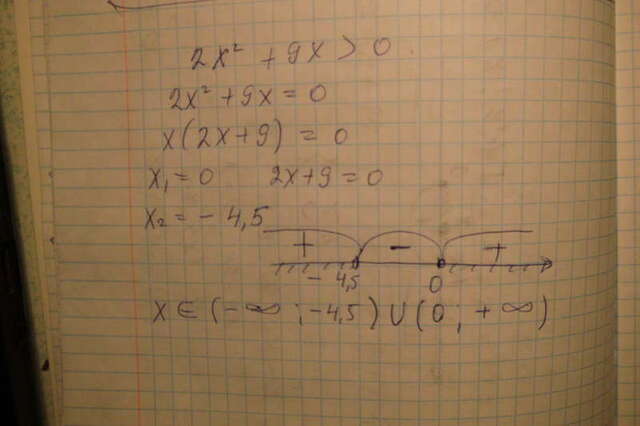 2x² + 9x > 0
2x² + 9x = 0
x(2x+9) = 0
x₁ = 0 2x+9 = 0
x₂ = - 4,5
+ - +
- 4,5 0
x ∈ (-∞ ; -4,5) ∪ (0 ; +∞)